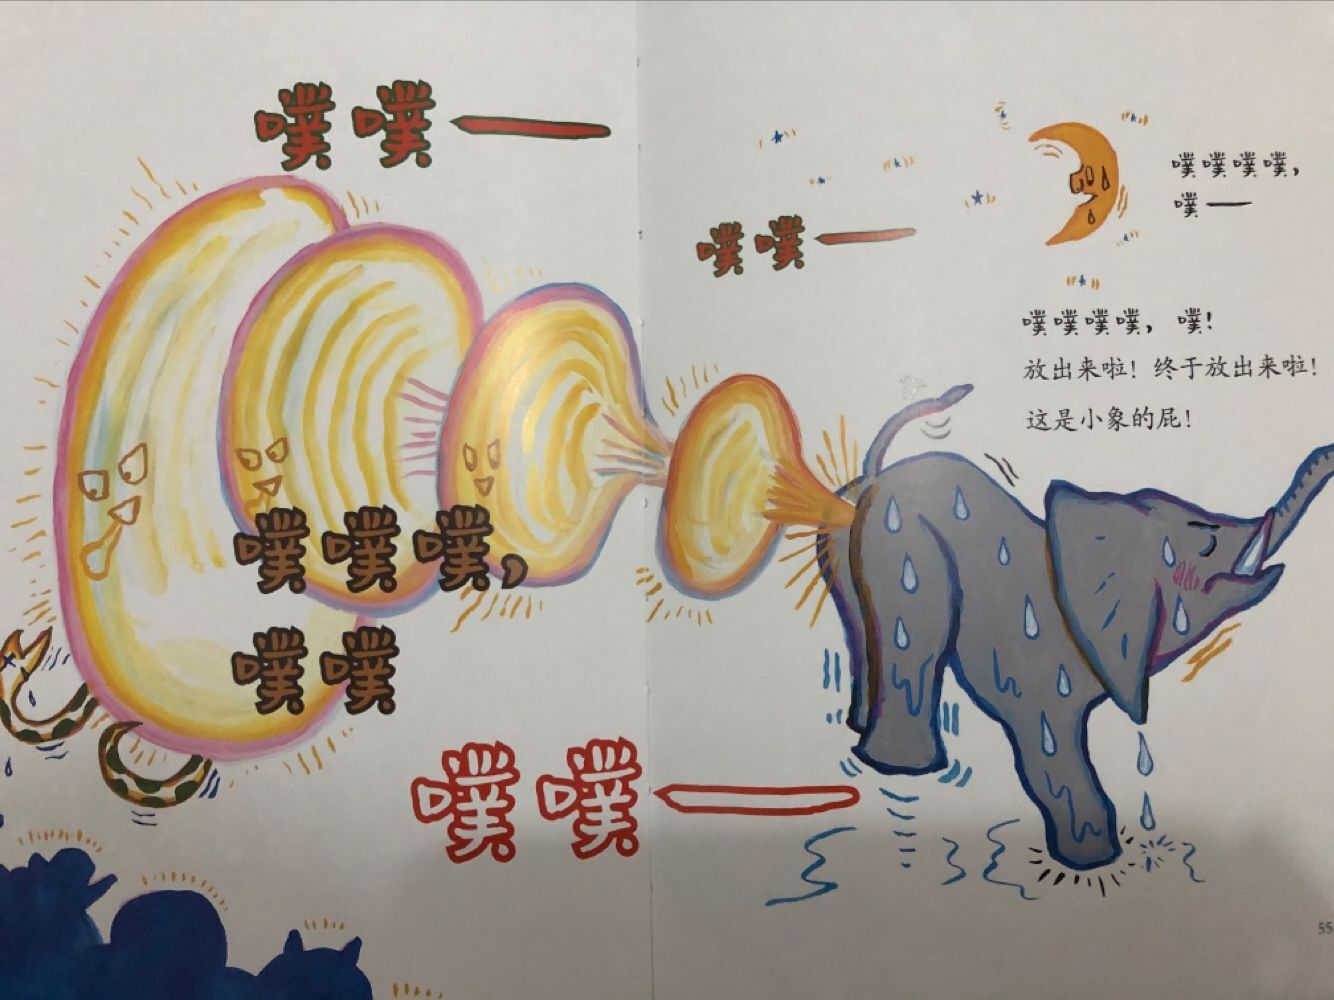 噗噗——
噗噗噗，
噗噗
噗噗——
噗噗——
噗噗噗噗，
噗——
噗噗噗噗，噗！
放出来啦！终于放出来啦！
这是小象的屁！
55